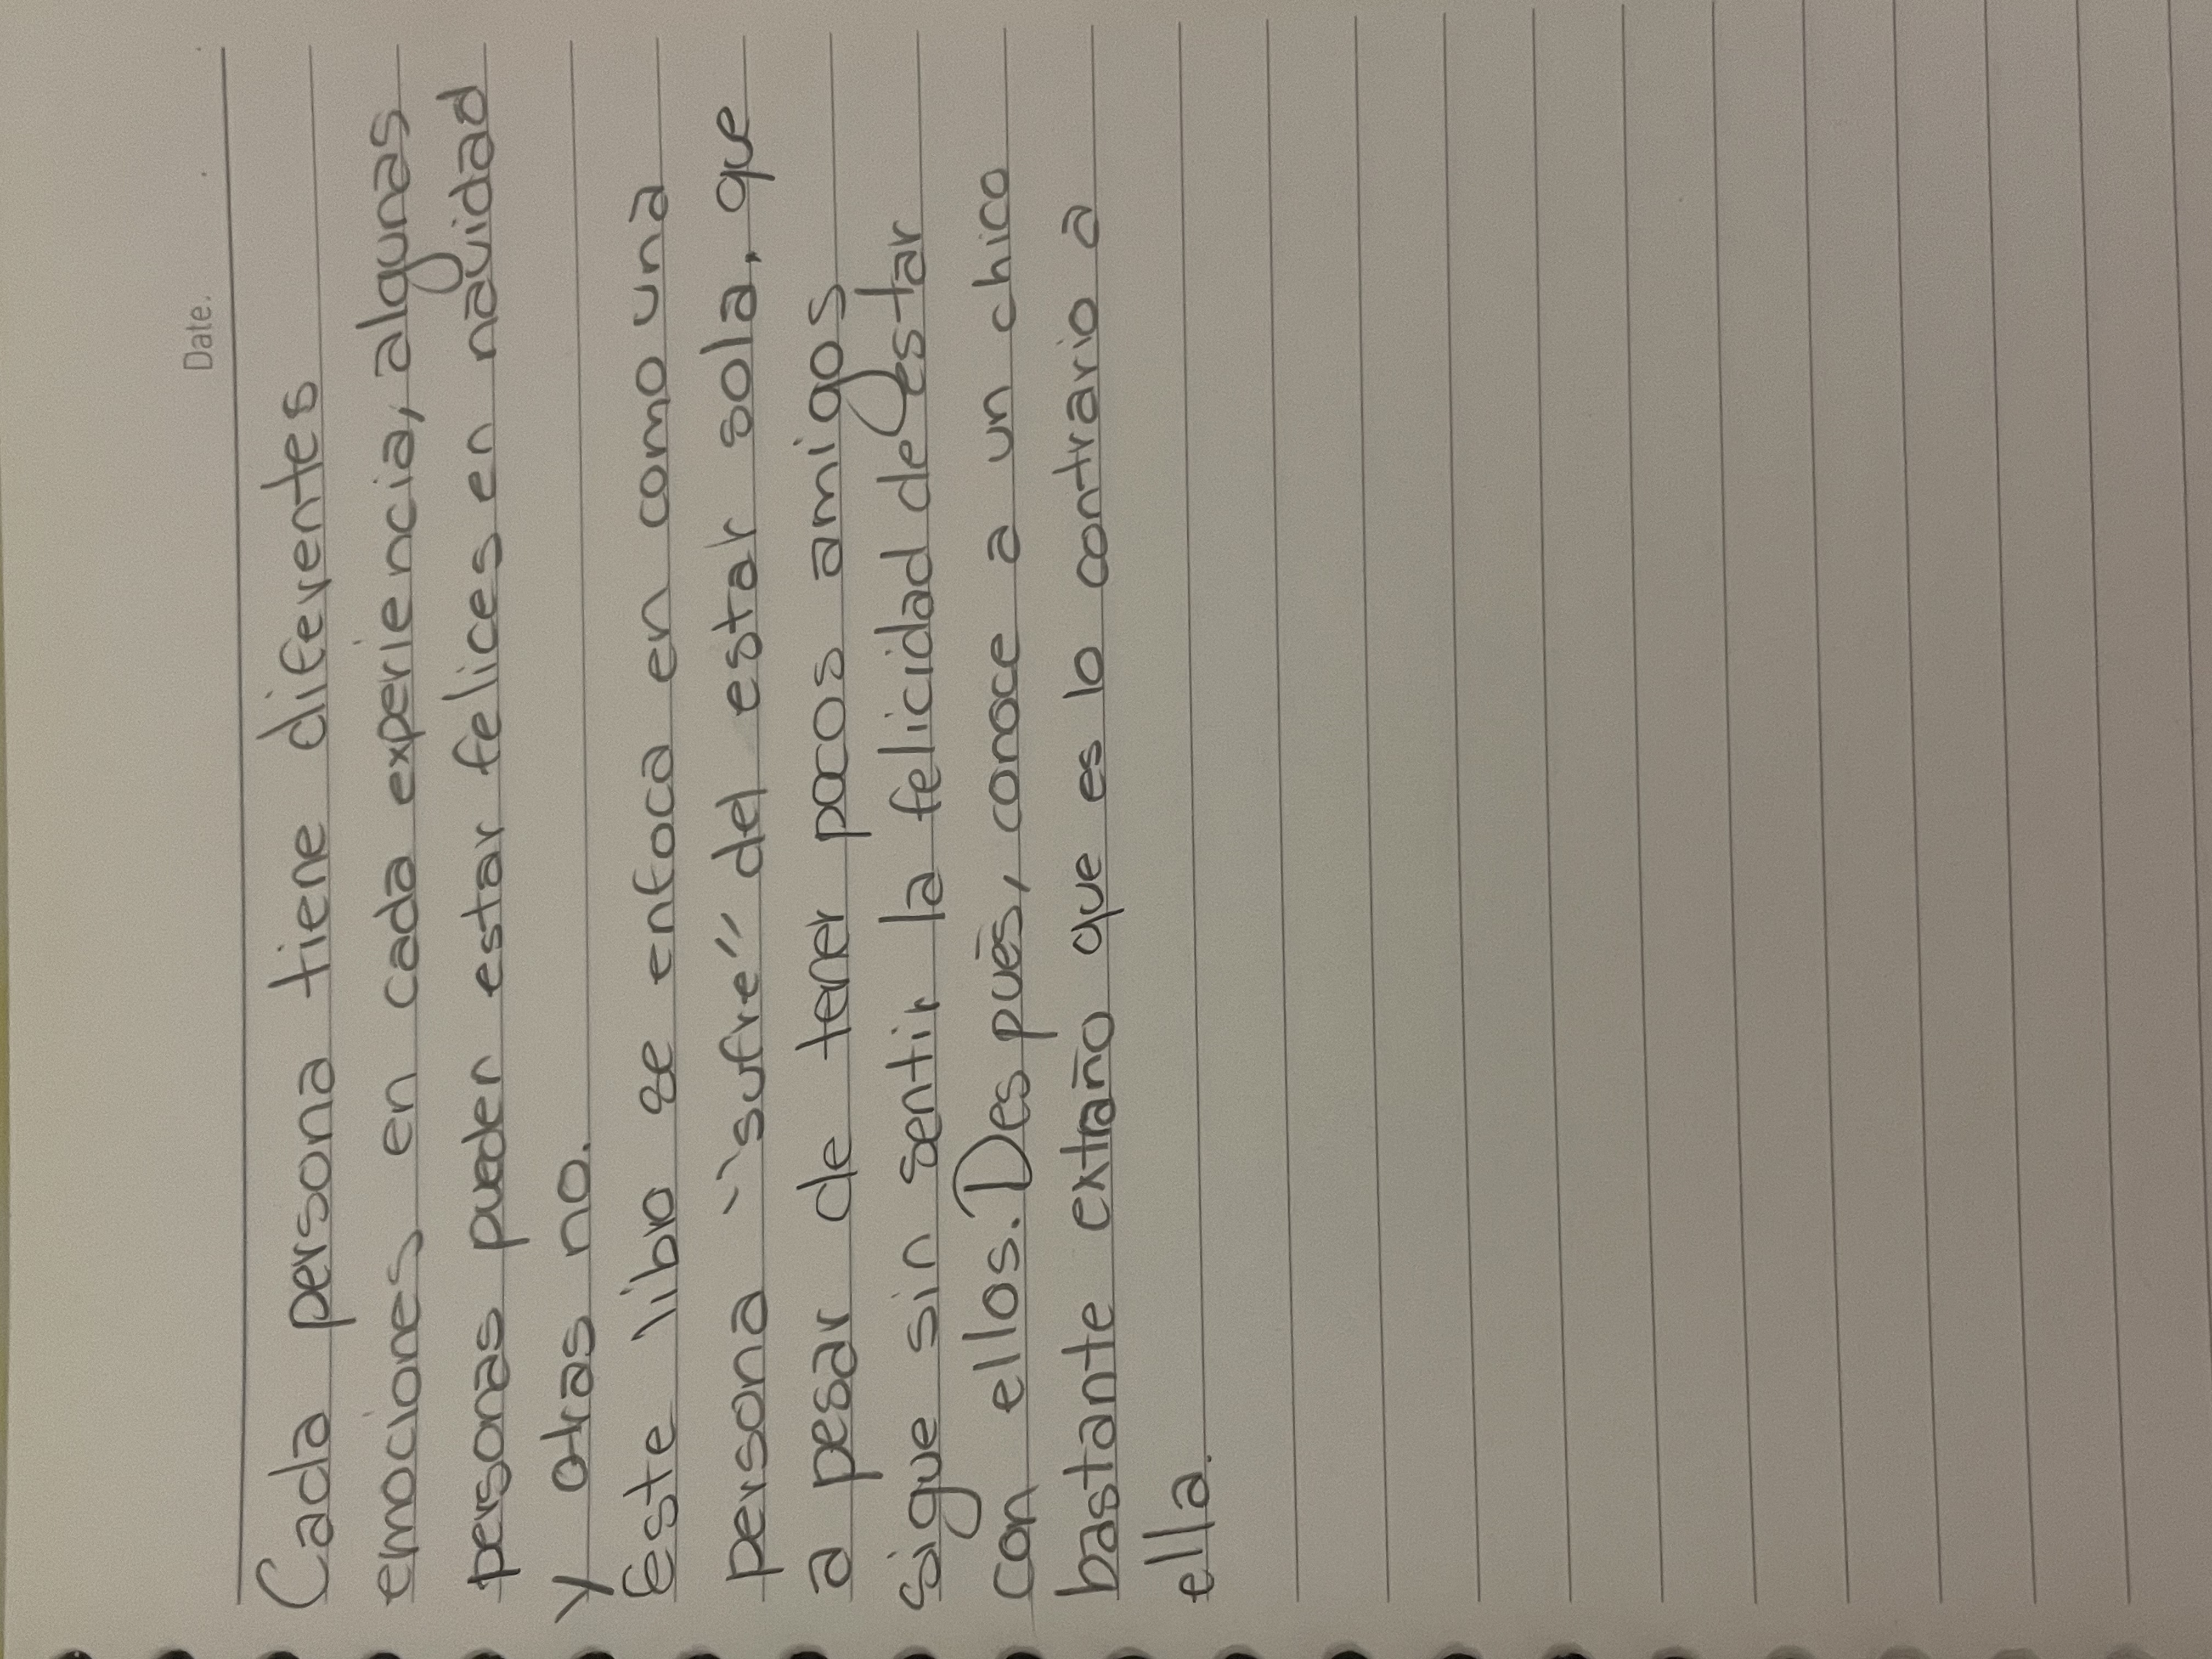 Date.
Cada persona tiene diferentes
emociones en cada experiencia, algunas
personas pueden estar felices en navidad
y otras no.
Este libro se enfoca en como una
persona "sufre" del estar sola, que
a pesar de tener pocos amigos
sigue sin sentir la felicidad de estar
con ellos. Después, conoce a un chico
bastante extraño que es lo contrario a
ella.